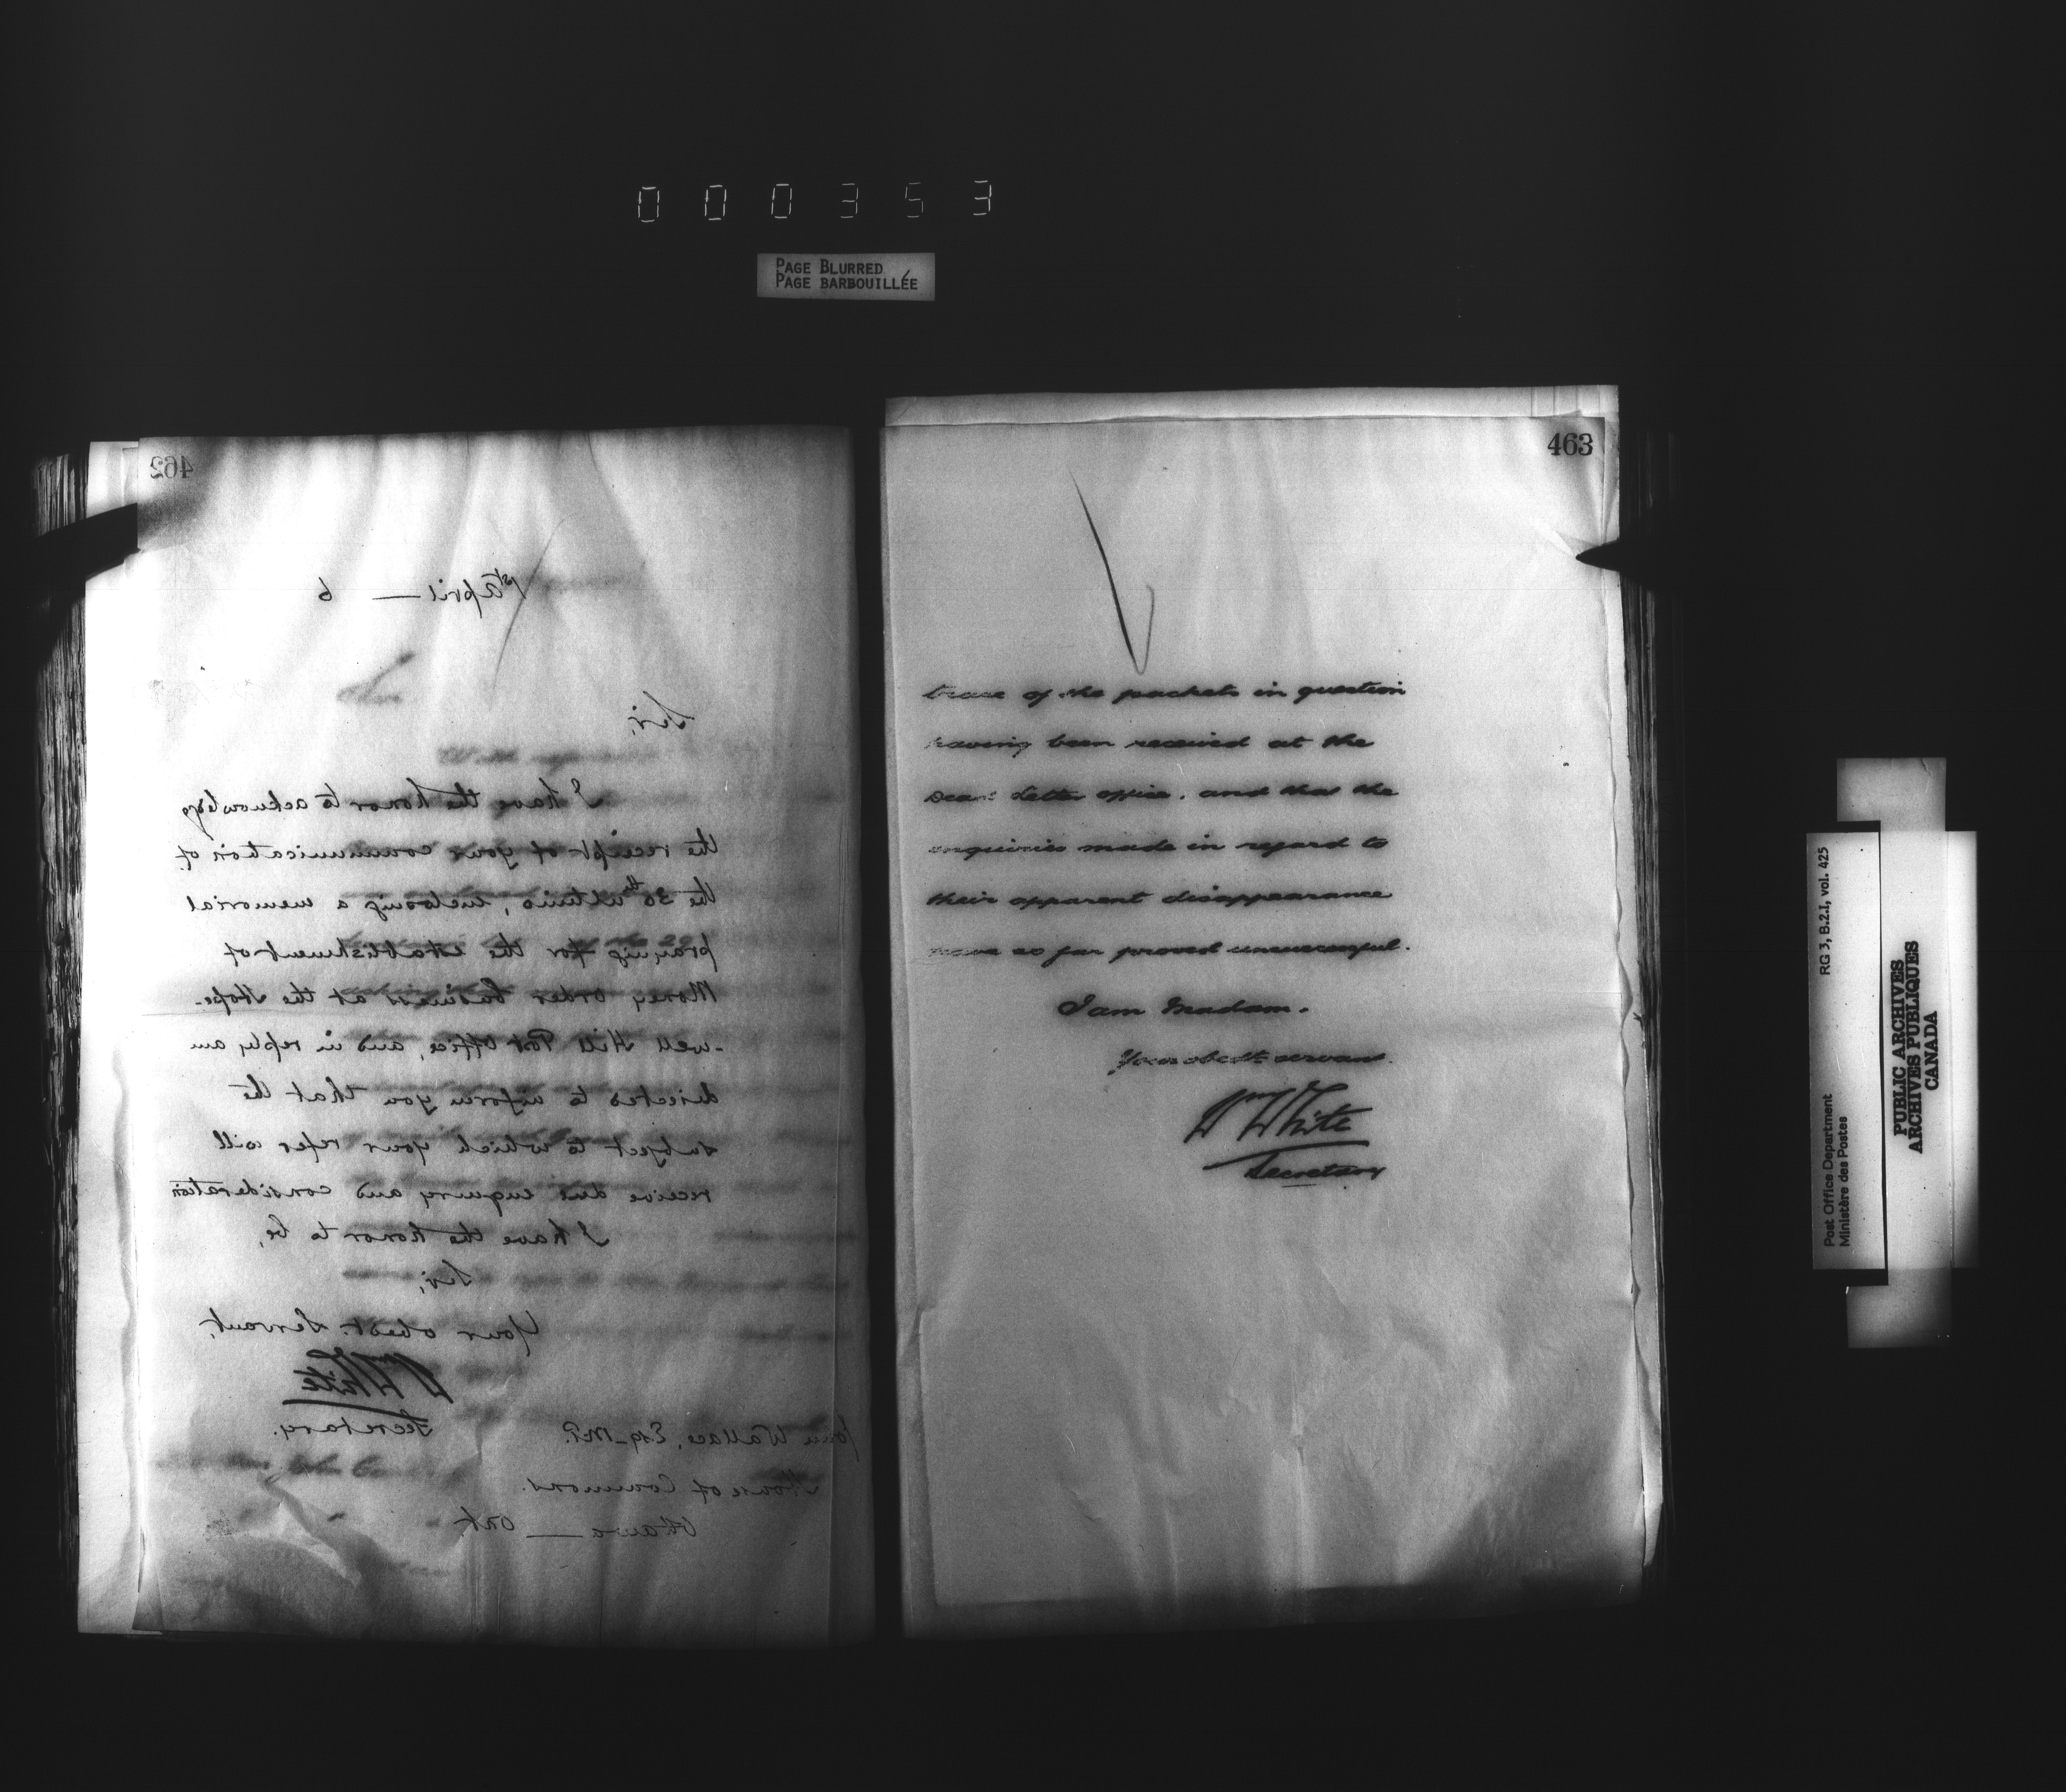 000353
PAGE BLURRED
PAGE BARBOUILLÉE
462
1st April — 6
Sir,
I have the honor to acknowledge
the receipt of your communication of
the 30th ultimo, enclosing a memorial
praying for the establishment of
Money Order business at the Hope-
-well Hill Post Office, and in reply am
directed to inform you that the
subject to which your refer will
receive due enquiry and consideration
I have the honor to be,
Sir,
Your obedt. Servant,
Wm White
Secretary.
John Wallace, Esq. M.P.
House of Commons.
Ottawa — Ont.
463
trace of the packets in question
having been received at the
Dead Letter office, and that the
enquiries made in regard to
their apparent disappearance
have so far proved unsuccessful.
I am Madam.
Your obedt servant.
Wm White
Secretary
RG 3, B.2.I, vol. 425
Post Office Department
Ministère des Postes
PUBLIC ARCHIVES
ARCHIVES PUBLIQUES
CANADA